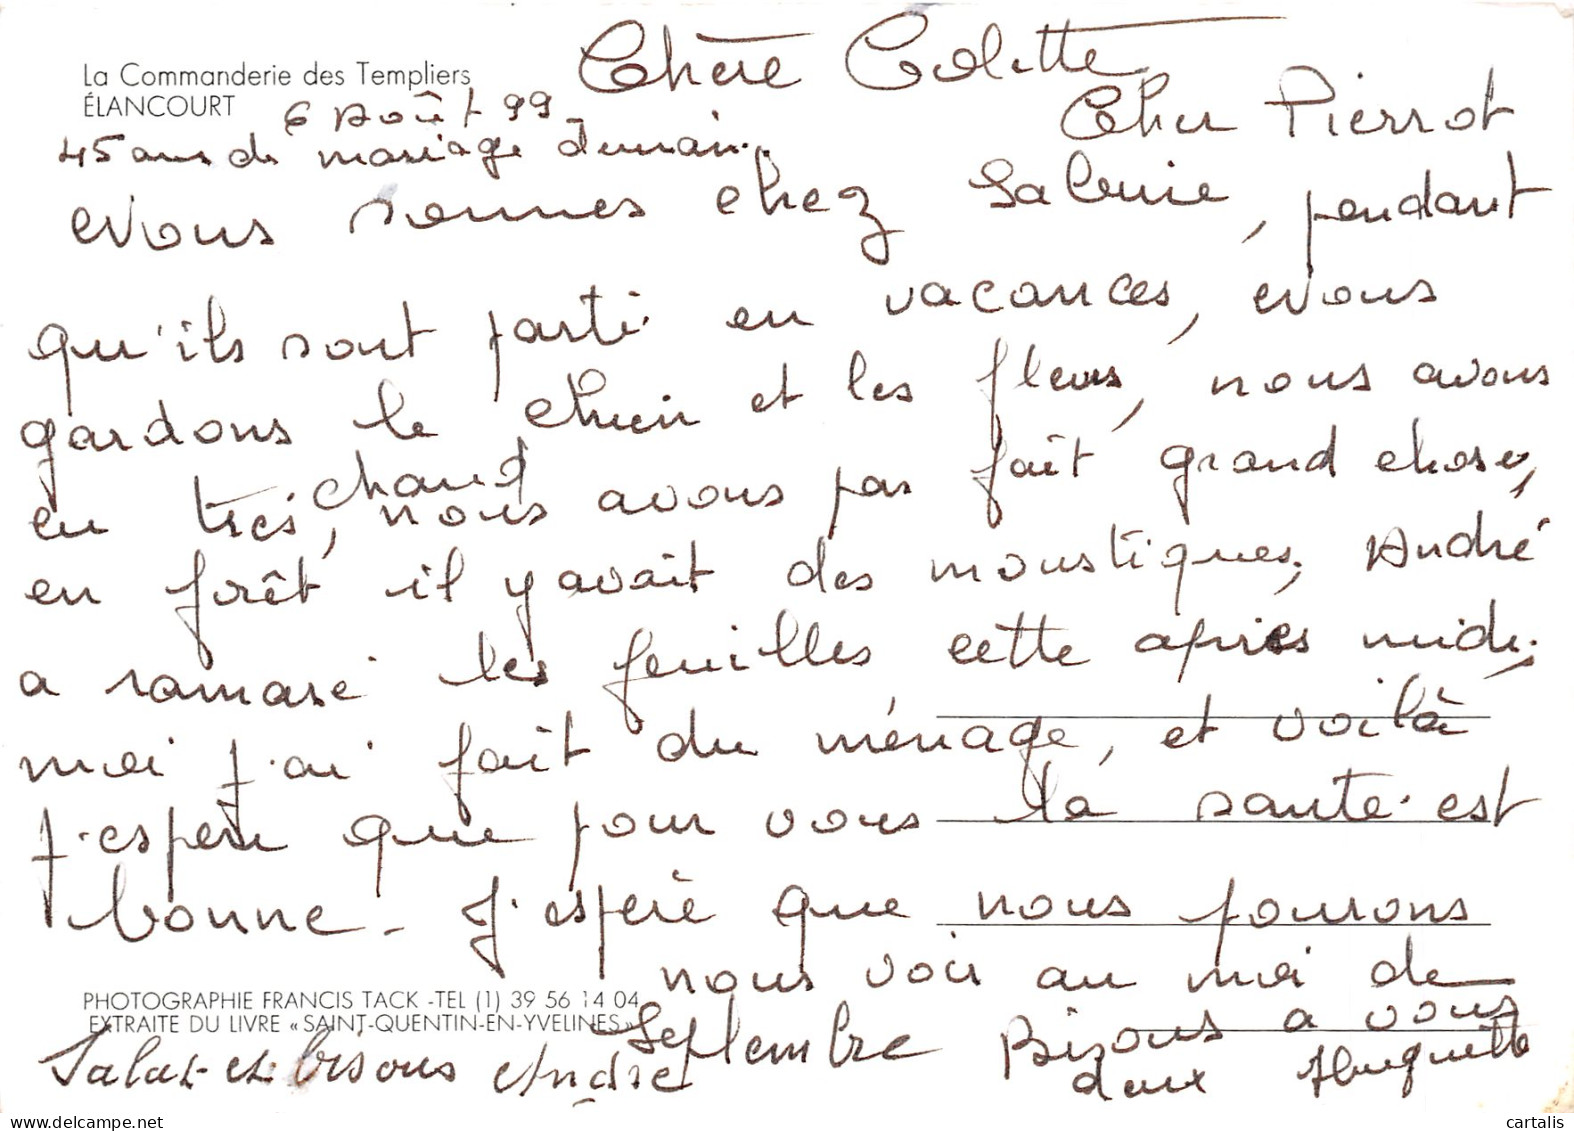 La Commanderie des Templiers
ÉLANCOURT
6 Août 99
45 ans de mariage demain.
Chère Colette
Cher Pierrot
Nous sommes chez , pendant
qu'ils sont parti en vacances, Nous
gardons le chien et les fleurs, nous avons
eu très chaud, nous avons pas fait grand chose,
en forêt il y avait des moustiques, André
a ramasé les feuilles cette après midi,
moi j'ai fait du ménage, et voilà
j'espère que pour vous la santé est
bonne - J'espère que nous pourons
nous voir au moi de
Septembre Bisous a vous
deux Huguette
Salut et bisous André
PHOTOGRAPHIE FRANCIS TACK -TEL (1) 39 56 14 04
EXTRAITE DU LIVRE «SAINT-QUENTIN-EN-YVELINES»
cartalis